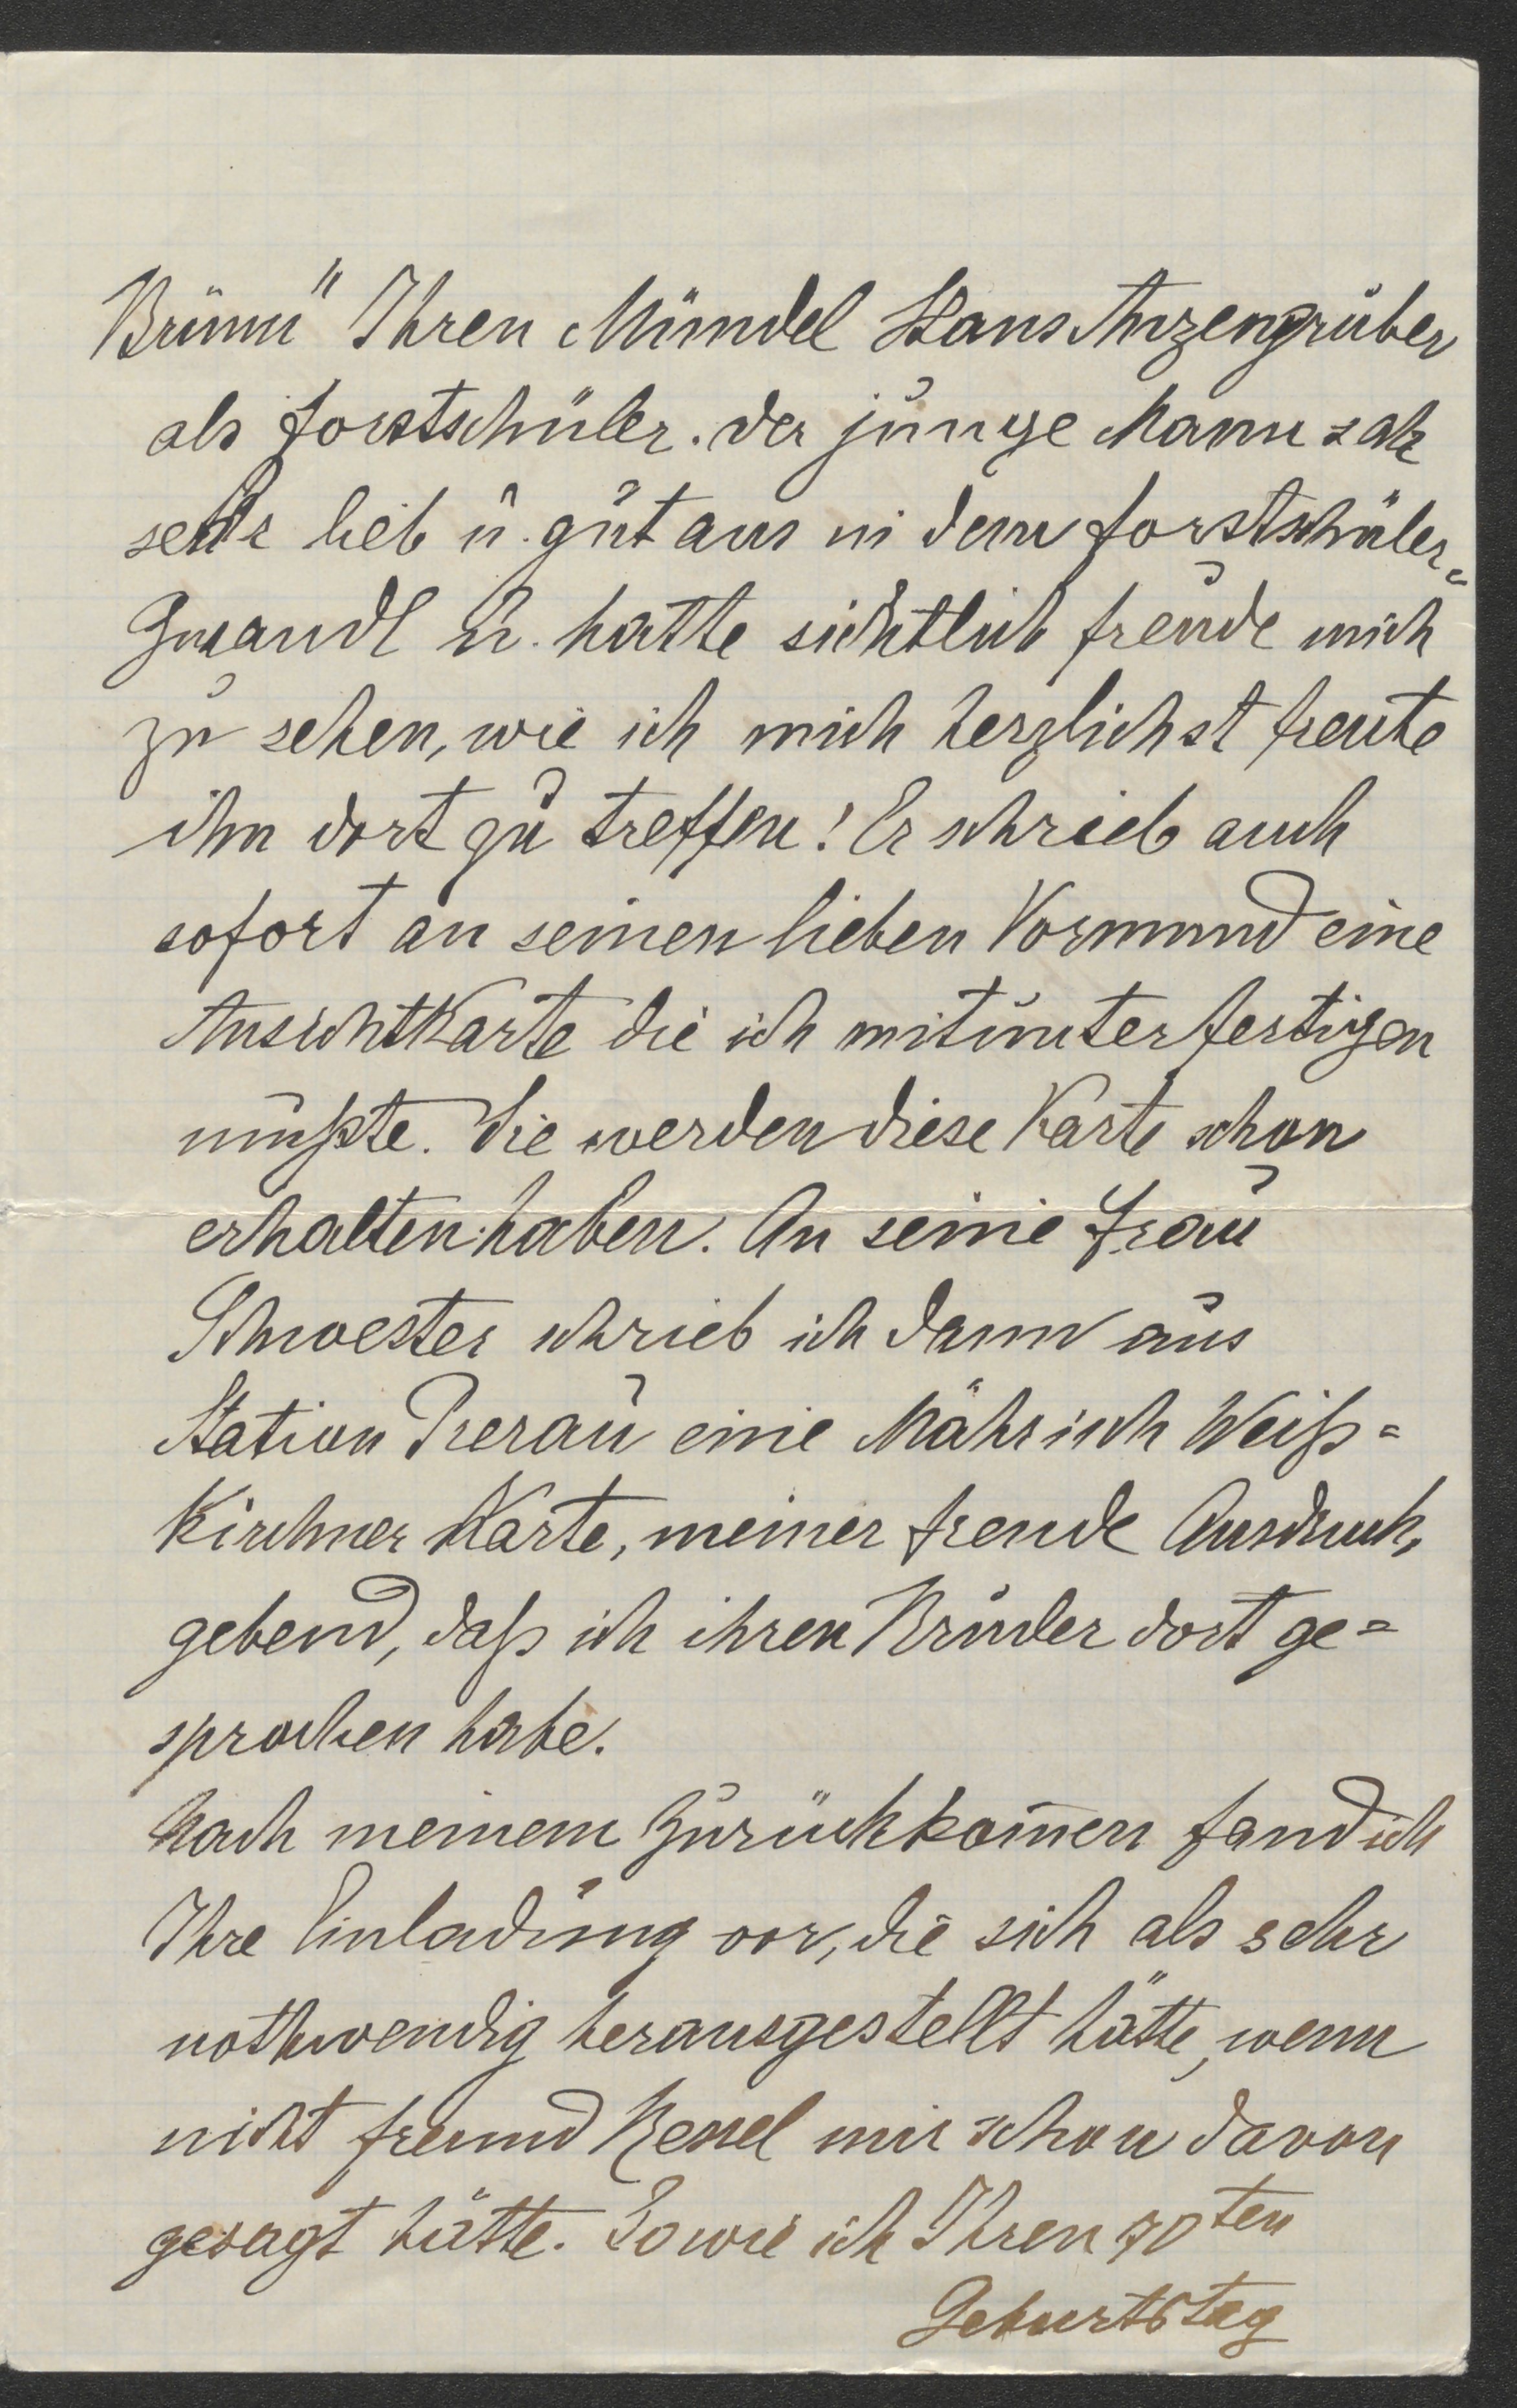 Brünn" Ihren Mündel Hans Anzengruber
als Forstschüler. Der junge Mann sah
sehr lieb u. gut aus in dem Forstschüler=
Gwandl u. hatte sichtlich Freude mich
zu sehen, wie ich mich herzlichst freute
ihn dort zu treffen! Er schrieb auch
sofort an seinen lieben Vormund eine
Ansichtkarte die ich mitunterfertigen
mußte. Sie werden diese Karte schon
erhalten haben. An seine Frau
Schwester schrieb ich dann aus
Station Prerau eine Mährisch Weiß=
Kirchner Karte, meiner Freude Ausdruck,
gebend, daß ich ihren Bruder dort ge=
sprochen habe.
Nach meinem Zurückkom̅en fand ich
Ihre Einladung vor, die sich als sehr
nothwendig herausgestellt hätte, wenn
nicht Freund mir schon davon
gesagt hätte. Sowie ich Ihren 70ten
Geburtstag